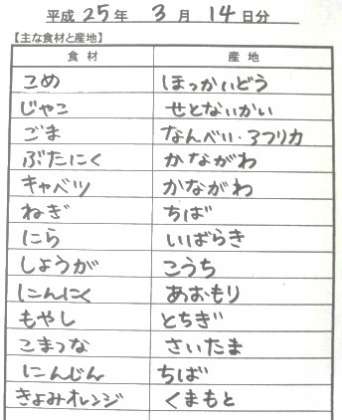 平成 25 年 3 月 14 日分
【主な食材と産地】
食材 産地
こめ ほっかいどう
じゃこ せとないかい
ごま なんべい・アフリカ
ぶたにく かながわ
キャベツ かながわ
ねぎ ちば
にら いばらき
しょうが こうち
にんにく あおもり
もやし とちぎ
こまつな さいたま
にんじん ちば
きよみオレンジ くまもと